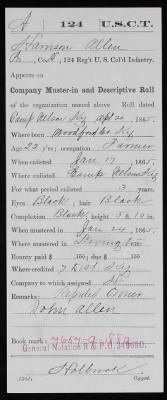 A 124 U.S.C.T.
Harrison Allen
Co. A, 124 Reg't U. S. Col'd Infantry.
Appears on
Company Muster-in and Descriptive Roll
of the organization named above. Roll dated
Camp Nelson Ky Apl 20, 1865.
Where born Woodford Co. Ky
Age 22 y'rs; occupation Farmer
When enlisted Jan 17, 1865.
Where enlisted Camp Nelson Ky
For what period enlisted 3 years.
Eyes Black; hair Black
Complexion Black; height 5 ft. 10 in.
When mustered in Jan 24, 1865.
Where mustered in Lexington
Bounty paid $ 100; due $ 100
Where credited 7 Dist. Ky
Company to which assigned
Remarks:
Owner
John Allen
Book mark:
General Notation R & P O,
Holbrook
Copyist.